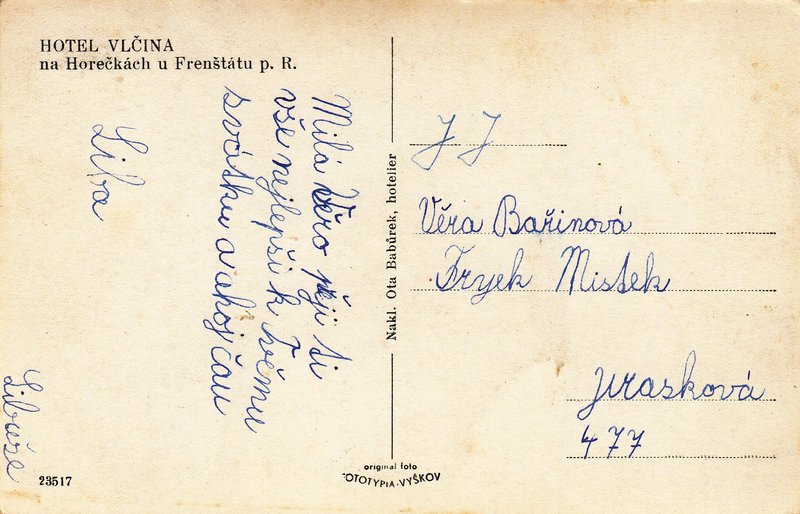 HOTEL VLČINA
na Horečkách u Frenštátu p. R.
Milá Věro přeji ti
vše nejlepši k Tvému
svátku a ahoj čau
Liba
Libuše
23517
Nakl. Ota Babůrek, hotelier
original foto
OTOTYPIA-VYŠKOV
J J
Věra Bařinová
Fryek Mistek
Jirasková
477